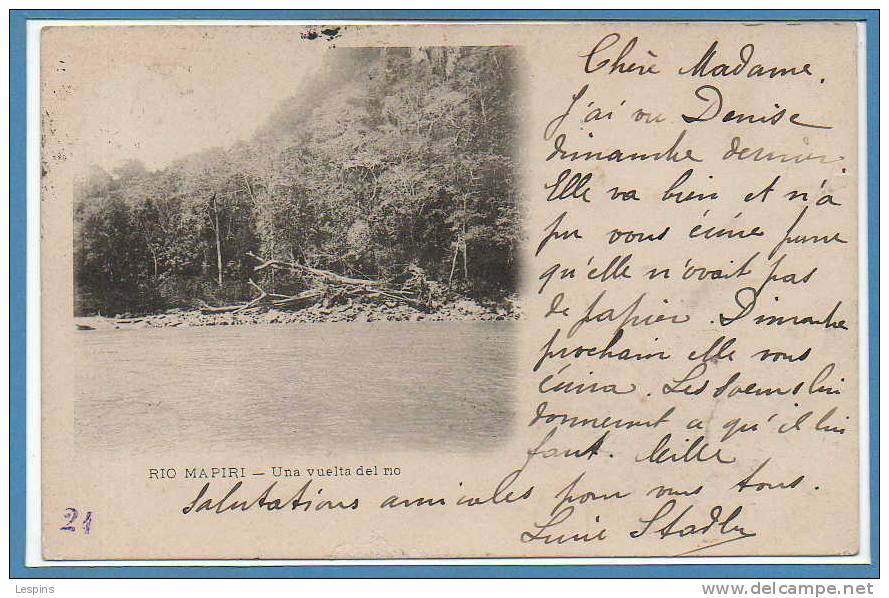 Chère Madame.
J'ai vu Denise
dimanche dernier
Elle va bien et n'a
pu vous écrire parce
qu'elle n'avait pas
de papier. Dimanche
prochain elle vous
écrira. Les Soeurs lui
donneront ce qu'il lui
faut. Mille
salutations amicales pour vous tous.
Stadler
RIO MAPIRI — Una vuelta del rio
21
Lespins
www.delcampe.net